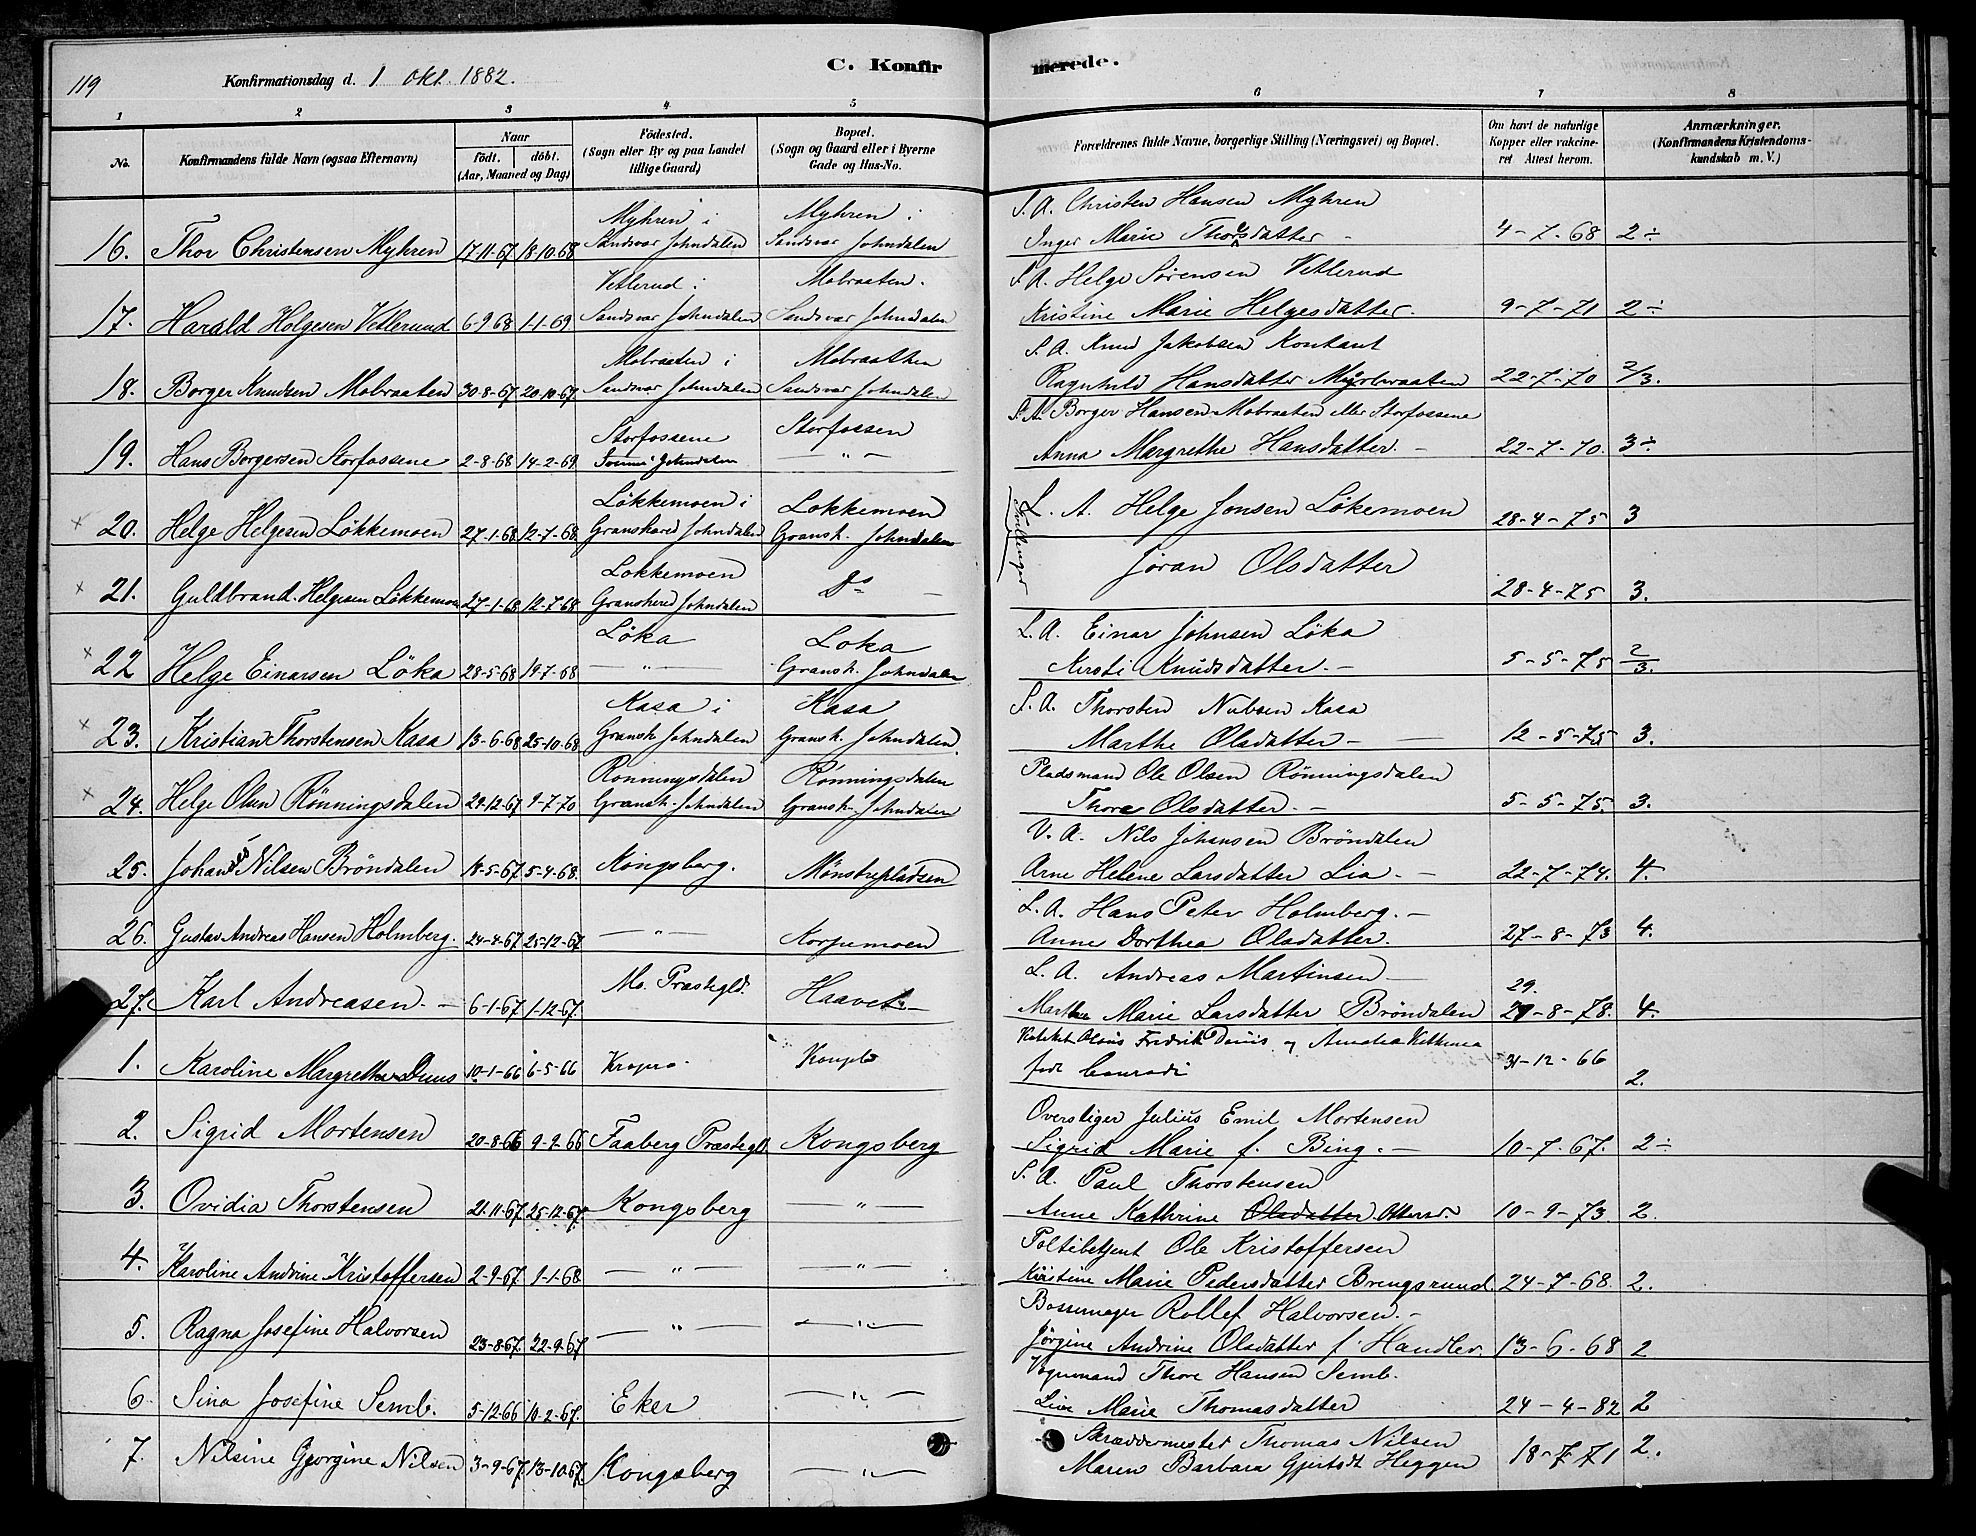 119
Konfirmationsdag d. 1 Okt. 1882.
C. Konfirmerede.
1 2 3 4 5 6 7 8
No.
Konfirmandens fulde Navn (ogsaa Efternavn)
Naar
födt. döbt.
(Aar, Maaned og Dag)
Födested.
(Sogn eller By og paa Landet
tillige Gaard)
Bopæl.
(Sogn og Gaard eller i Byerne
Gade og Hus-No.
Forældrenes fulde Navne, borgerlige Stilling (Næringsvei) og Bopæl.
Om havt de naturlige
Kopper eller vakcine-
ret Attest herom.
Anmærkninger.
(Konfirmandens Kristendoms-
kundskab m. V.)
Myhren i Myhren i S. A. Christen Hansen Myhren
16. Thor Christensen Myhren 17-11-67 18-10-68 Sandsvær Johndalen Sandsvær Johndalen Inger Marie Thorsdatter - 4-7-68 2÷
Vetlerud i Mobraaten. S. A. Helge Sørensen Vetlerud
17. Harald Helgesen Vetlerund 6-9-68 1-1-69 Sandsvær Johndalen Sandsvær Johndalen Kristine Marie Helgesdatter. 9-7-71 2÷
Mobraaten i Mobraatten S. A. Knud Jakobsen Kontant
18. Borger Knudsen Mobraaten 30-8-67 20-10-67 Sandsvær Johndalen Sandsvær Johndalen Ragnhild Hansdatter 22-7-70 2/3.
Storfossene Storfossen S. A. Borger Hansen Mobraaten eller Storfossene
19. Hans Borgersen Storfossene 2-8-68 14-2-69 Johndalen — " — Anna Margrethe Hansdatter. - 22-7-70. 3÷
Løkkemoen i Løkkemoen L. A. Helge Jonsen Løkemoen
× 20. Helge Helgesen Løkkemoen 27-1-68 12-7-68 Gransherred Johndalen Gransh. Johndalen 28-4-75 3
Tvillinger
Løkkemoen Do Jøran Olsdatter
× 21. Guldbrand Helgesen Løkkemoen 27-1-68 12-7-68 Gransherred Johndalen 28-4-75 3.
Löka Loka L. A. Einar Johnsen Löka
× 22 Helge Einarsen Löka 28-5-68 19-7-68 — " — Gransh. Johndalen Kirsti Knudsdatter. - 5-5-75 2/3.
Kasa i Kasa S. A. Thorsten Nubsen Kasa
× 23. Kristian Thorstensen Kasa 13-6-68 25-10-68 Gransh Johndalen Gransh. Johndalen. Marthe Olsdatter - 12-5-75 3.
Rönningsdalen Rönningsdalen Pladsmand Ole Olsen Rönningsdalen
× 24. Helge Olsen Rönningsdalen 29-12-67 9-7-70 Gransh. Johndalen Gransh. Johndalen Thore Olsdatter. - 5-5-75. 3.
V. A. Nils Johansen Bröndalen
25. Johannes Nilsen Bröndalen 18-5-67 5-4-68. Kongsberg. Mønstrepladsen Arne Helene Larsdatter Lia - 22-7-74. 4.
L. A. Hans Peter Holmberg. -
26. Gustav Andreas Hansen Holmberg. 24-4-67 25-12-67 — " — Korpemoen Anne Dorthea Olsdatter. 27-8-73 4.
L. A. Andreas Martinsen - 29.
27. Karl Andreasen. - 6-1-67 1-12-67. Mo Præstegld. Haavet Marthe Marie Larsdatter Bröndalen 29-8-78. 4.
Fredrik og Amalia
1. Karoline Margrethe 10-1-66 6-5-66 Kragerø født Conradi 31-12-66 2.
Overstiger Julius Emil Mortensen
2. Sigrid Mortensen 20-8-66 9-2-66 Faaberg Præstegld. Kongsberg Sigrid Marie f. Bing. - 10-7-67. 2÷
S. A. Paul Thorstensen
3. Ovidia Thorstensen 21-11-67 25-12-67 Kongsberg — " — Anne Kathrine Olsdatter 10-9-73. 2.
Politibetjent Ole Kristoffersen
4. Karoline Andrine Kristoffersen 2-9-67 1-1-68 — " — — " — Kirstine Marie Pedersdatter Brengsrund. 24-7-68. 2.
Rollef Halvorsen. -
5. Ragna Josefine Halvorsen 23-8-67. 22-9-67 — " — — " — Jörgine Andrine Olsdatter f. Handler. 13-6-68 2
Vognmand Thore Hansen Semb.
6. Sina Josefine Semb. 5-12-66 10-2-67. Eker — " — Marie Thomasdatter 24-4-82 2
Skræddermester Thomas Nilsen
7. Nilsine Georgine Nilsen 3-9-67 13-10-67 Kongsberg — " — Maren Barbara Gjertsdt Heggen 18-7-71 2.